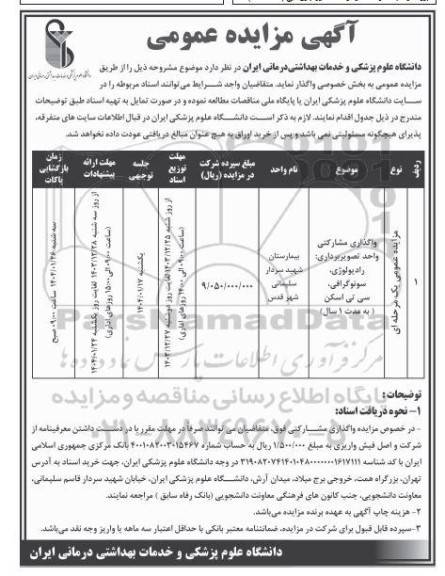 آگهی مزایده عمومی
دانشگاه علوم پزشکی و خدمات بهداشتی درمانی ایران در نظر دارد موضوع مشروحه ذیل را از طریق
مزایده عمومی به بخش خصوصی واگذار نماید. متقاضیان واجد شرایط می‌توانند اسناد مربوطه را در
سایت دانشگاه علوم پزشکی ایران یا پایگاه ملی مناقصات مطالعه نموده و در صورت تمایل به تهیه اسناد طبق توضیحات
مندرج در ذیل جدول اقدام نمایند. لازم به ذکر است دانشگاه علوم پزشکی ایران در قبال اطلاعات سایت های متفرقه،
پذیرای هیچگونه مسئولیتی نمی باشد و پس از خرید اوراق به هیچ عنوان مبالغ دریافتی عودت داده نخواهد شد.
ردیف نوع موضوع نام واحد مبلغ سپرده شرکت در مزایده (ریال) مهلت توزیع اسناد جلسه توجیهی مهلت ارائه پیشنهادات زمان بازگشایی پاکات
مزایده عمومی یک مرحله ای
واگذاری مشارکتی
واحد تصویربرداری:
رادیولوژی،
سونوگرافی،
سی تی اسکن
(به مدت ۱ سال)
بیمارستان
شهید سردار
سلیمانی
شهر قدس
۹/۰۵۰/۰۰۰/۰۰۰
از روز شنبه ۱۴۰۳/۱۲/۲۵ لغایت روز دوشنبه ۱۴۰۳/۱۲/۲۷
(ساعت ۰۹:۰۰ الی ۱۴:۰۰ روزهای اداری)
یکشنبه ۱۴۰۴/۰۱/۱۷
از روز سه شنبه ۱۴۰۳/۱۲/۲۸ لغایت روز یکشنبه ۱۴۰۴/۰۱/۲۴
(ساعت ۰۹:۰۰ الی ۱۵:۰۰ روزهای اداری)
سه شنبه ۱۴۰۴/۰۱/۲۶ ساعت ۰۹:۰۰ صبح
ParsNamadData
مرکز فرآوری اطلاعات پارس نماد داده ها
پایگاه اطلاع رسانی مناقصه و مزایده
توضیحات:
۱- نحوه دریافت اسناد:
- در خصوص مزایده واگذاری مشارکتی فوق، متقاضیان می توانند صرفا در مهلت مقرر با در دست داشتن معرفینامه از
شرکت و اصل فیش واریزی به مبلغ ۱/۵۰۰/۰۰۰ ریال به حساب شماره ۴۰۰۱۰۸۲۰۰۳۰۱۵۴۶۷ بانک مرکزی جمهوری اسلامی
ایران با کد شناسه در وجه دانشگاه علوم پزشکی ایران، جهت خرید اسناد به آدرس
تهران، بزرگراه همت، خروجی برج میلاد، میدان آرش، دانشگاه علوم پزشکی ایران، خیابان شهید سردار قاسم سلیمانی،
معاونت دانشجویی، جنب کانون های فرهنگی معاونت دانشجویی (بانک رفاه سابق) مراجعه نمایند.
۲- هزینه چاپ آگهی به عهده برنده مزایده می‌باشد.
۳-سپرده قابل قبول برای شرکت در مزایده، ضمانتنامه معتبر بانکی با حداقل اعتبار سه ماهه یا واریز وجه نقد می‌باشد.
دانشگاه علوم پزشکی و خدمات بهداشتی درمانی ایران